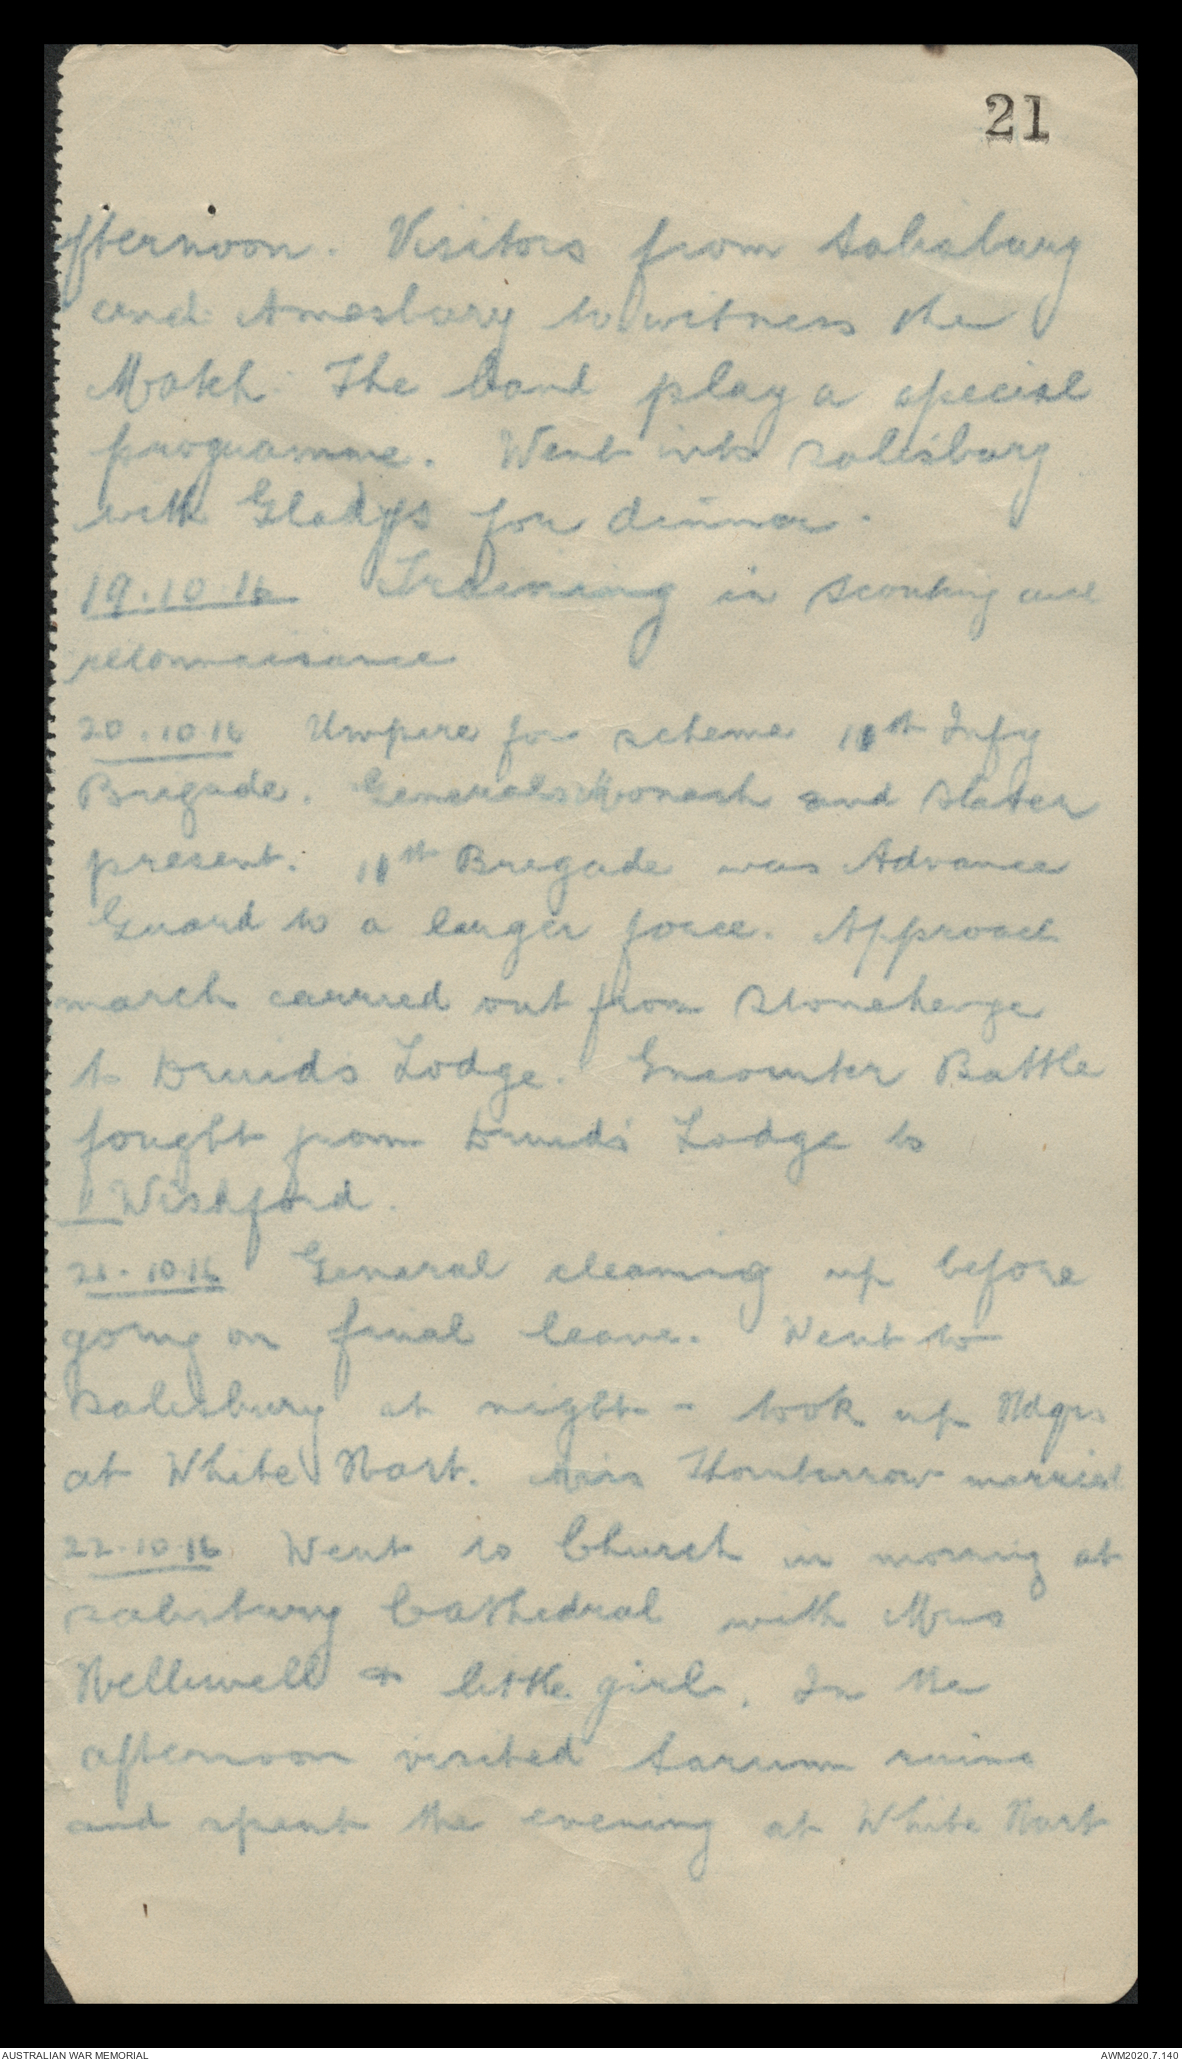 21
fternoon. Visitors from Salisbury
and Amesbury to witness the
Match. The band play a special
programme. Went into Salisbury
with Gladys for dinner.
19.10.16 Training in scouting and
reconnaisance
20.10.16 Umpire for scheme 11th Infy
Brigade. Generals Monash and Slater
present. 11th Brigade was Advance
Guard to a larger force. Approach
march carried out from Stonehenge
to Druids Lodge. Encounter Battle
fought from Druids Lodge to
Wishford.
21.10.16 General cleaning up before
going on final leave. Went to
Salisbury at night - took up Hdqrs
at White Hart. Miss married
22.10.16 Went to Church in morning at
Salisbury Cathedral with
Helliwell & little girl. In the
afternoon visited Sarum ruins
and spent the evening at White Hart
AUSTRALIAN WAR MEMORIAL
AWM2020.7.140